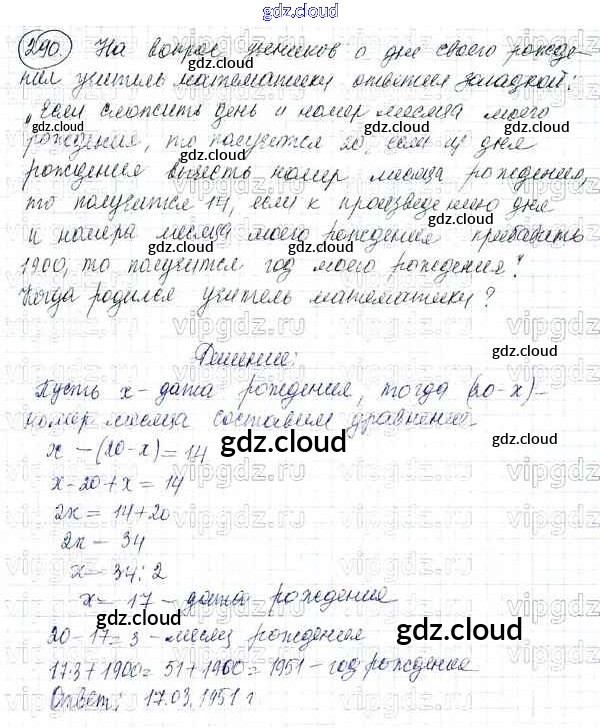 gdz.cloud
290. На вопрос учеников о дне своего рожде-
ния учитель математики ответил загадкой:
„Если сложить день и номер месяца моего
рождения, то получится 20, если из дня
рождения вычесть номер месяца рождения,
то получится 14, если к произведению дня
и номера месяца моего рождения прибавить
1900, то получится год моего рождения".
Когда родился учитель математики?
Решение:
Пусть x - дата рождения, тогда (20-x) -
номер месяца составим уравнение.
x - (20-x) = 14
x-20+x = 14
2x = 14+20
2x = 34
x = 34:2
x = 17 - дата рождения
20-17=3 - месяц рождения
17·3+1900=51+1900=1951 - год рождения
Ответ: 17.03.1951 г
gdz.cloud